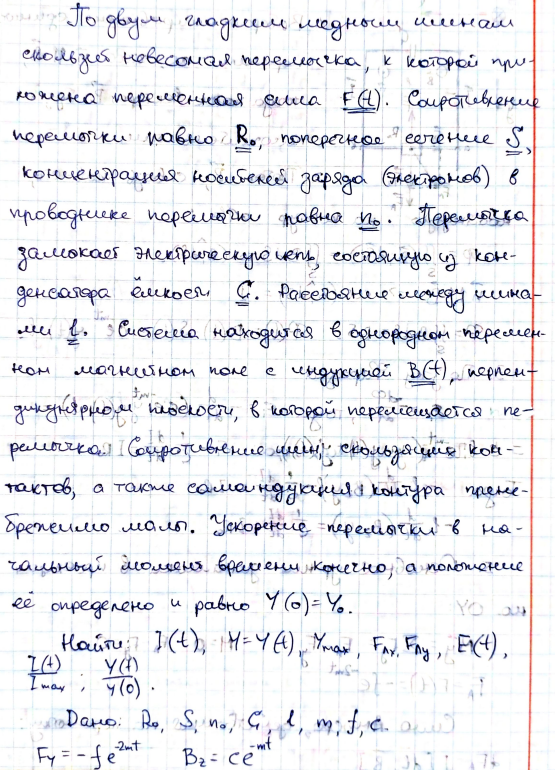 По двум гладким медным шинам
скользит невесомая перемычка, к которой при-
ложена переменная сила F(t). Сопротивление
перемычки равно R₀, поперечное сечение S,
концентрация носителей заряда (электронов) в
проводнике перемычки равна n₀. Перемычка
замыкает электрическую цепь, состоящую из кон-
денсатора ёмкости C. Расстояние между шина-
ми l. Система находится в однородном перемен-
ном магнитном поле с индукцией B(t), перпен-
дикулярном плоскости, в которой перемещается пе-
ремычка. Сопротивление шин, скользящих кон-
тактов, а также самоиндукция контура прене-
брежимо малы. Ускорение перемычки в на-
чальный момент времени конечно, а положение
её определено и равно Y(0) = Y₀.
Найти I(t), Y=Y(t), Ymax, Fлx, Fлy, Ei(t),
I(t)/Imax ; Y(t)/Y(0).
Дано: R₀, S, n₀, C, l, m, f, c.
Fy = -fe^-2mt Bz = ce^-mt